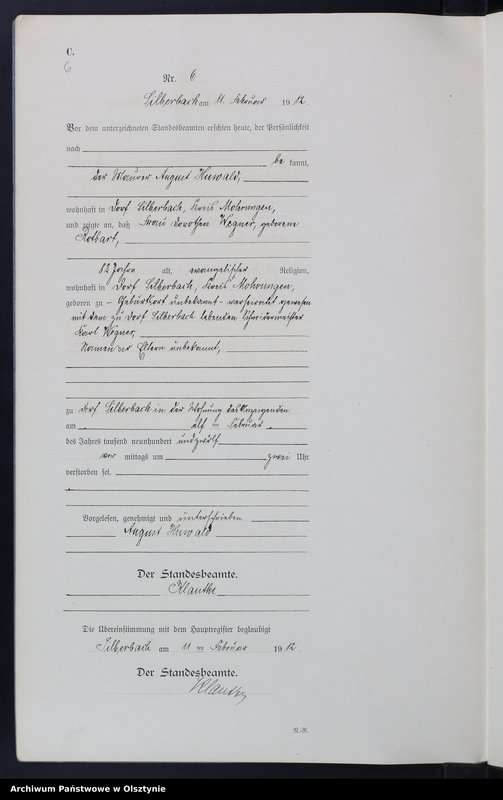 C.
6
Nr. 6
Silberbach am 11. Februar 1912.
Vor dem unterzeichneten Standesbeamten erschien heute, der Persönlichkeit
nach
be kannt,
der Maurer August Huwald,
wohnhaft in Dorf Silberbach, Kreis Mohrungen,
und zeigte an, daß Frau Dorothea Wegner, geborene
Rotbart,
82 Jahre alt, evangelischer Religion,
wohnhaft in Dorf Silberbach, Kreis Mohrungen,
geboren zu - Geburtsort unbekannt - verheiratet gewesen
mit dem zu Dorf Silberbach lebenden Schneidermeister
Karl Wegner,
Namen der Eltern unbekannt,
zu Dorf Silberbach in der Wohnung des Anzeigenden
am elf ten Februar
des Jahres tausend neunhundert und zwölf
vor mittags um zwei Uhr
verstorben sei.
Vorgelesen, genehmigt und unterschrieben
August Huwald
Der Standesbeamte.
Klautke
Die Übereinstimmung mit dem Hauptregister beglaubigt
Silberbach am 11 ten Februar 1912.
Der Standesbeamte.
Klautke
N.-R.
Archiwum Państwowe w Olsztynie